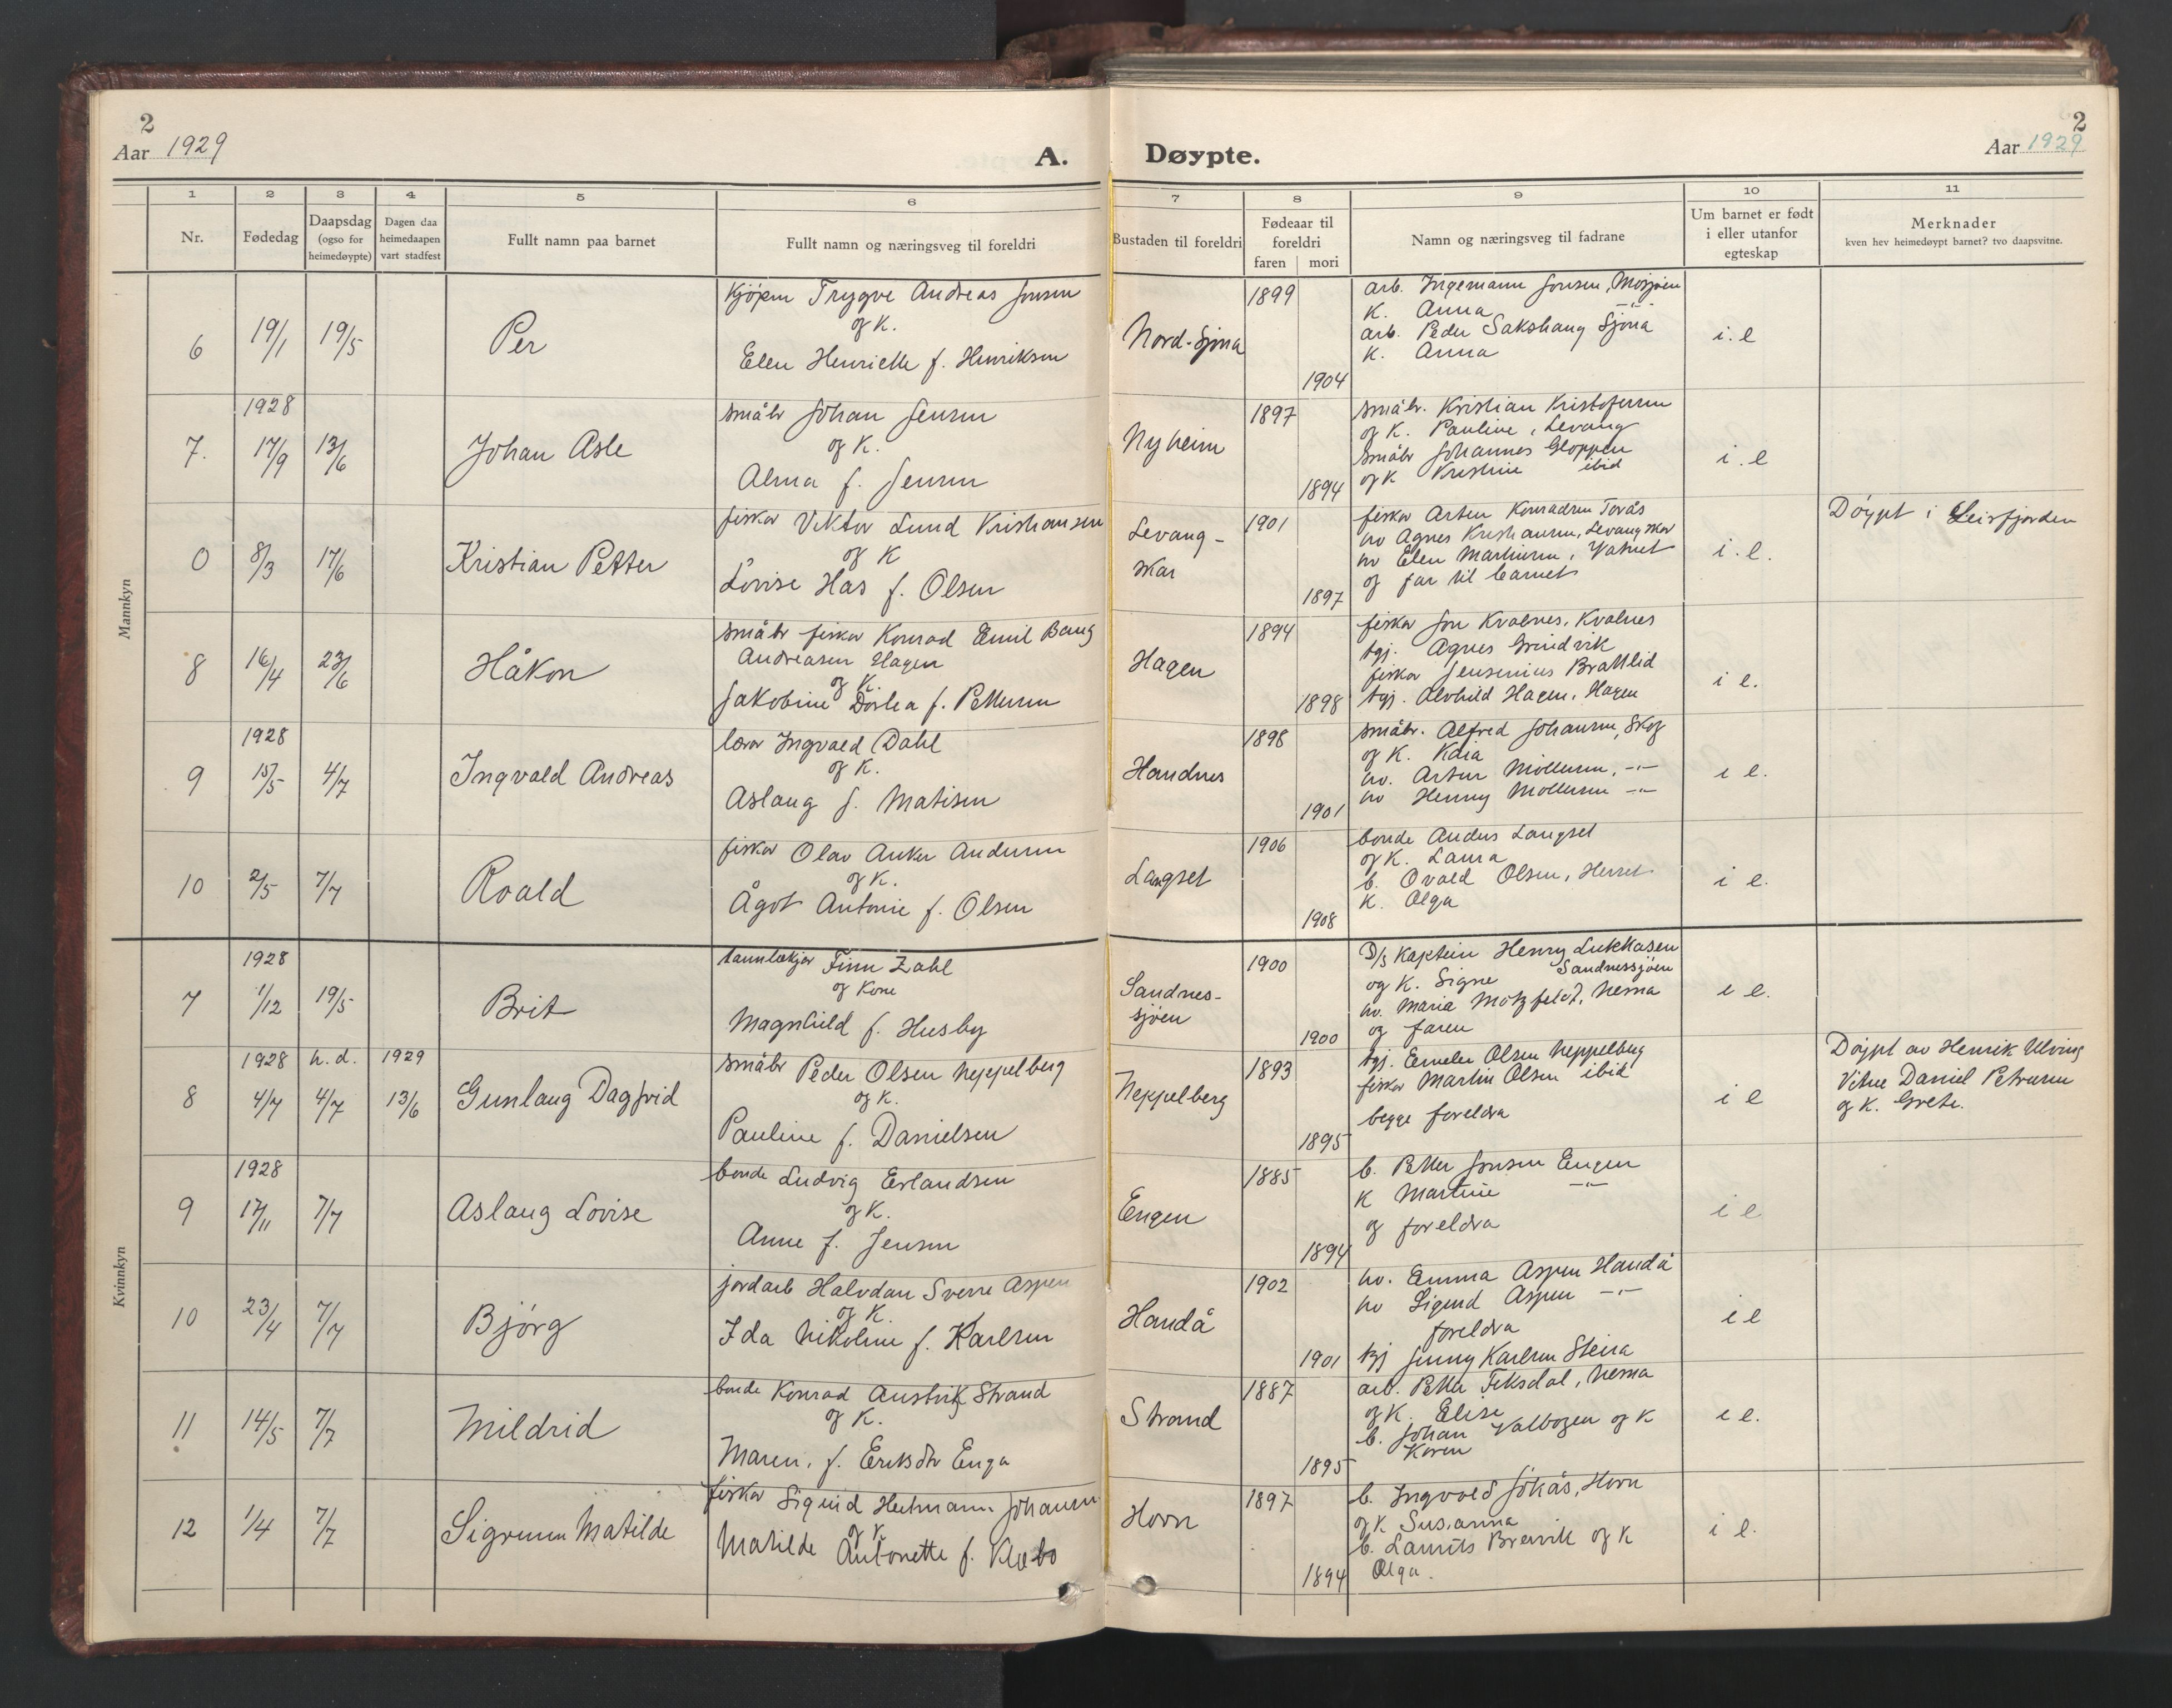 2
Aar 1929
A.
Døypte.
2
Aar 1929
1 2 3 4 5 6 7 8 9 10 11
Nr.
Fødedag
Daapsdag
(ogso for
heimedøypte)
Dagen daa
heimedaapen
vart stadfest
Fullt namn paa barnet
Fullt namn og næringsveg til foreldri
Bustaden til foreldri
Fødeaar til
foreldri
faren mori
Namn og næringsveg til fadrane
Um barnet er født
i eller utanfor
egteskap
Merknader
kven hev heimedøypt barnet? tvo daapsvitne.
Mannkyn
6 19/1 19/5 Per
Kjøpm Trygve Andreas Jonsen
og K.
Elen Henriette f. Henriksen
Nord-Sjona
1899
1904
arb. Ingemann Jonsen, Mosjøen
K. Anna -"-
arb. Peder Sakshaug Sjona
K. Anna
i. e
7. 1928 17/9 13/6 Johan Asle
småbr Johan Jensen
og K.
Alma f. Jensen
Nyheim
1897
1894
småbr. Kristian Kristofersen
og K. Pauline, Levang
småbr Johannes Gloppen
og K Kristine ibid
i. e
0 8/3 17/6 Kristian Petter
fisker Viktor Lund Kristiansen
og K
Lovise Has f. Olsen
Levang-
skar
1901
1897
fisker Arten Konradsen Toras
hv Agnes Kristiansen, Levangskar
hv Elen Martinsen, Vatnet
og far til barnet
i. e.
Døypt i Leirfjorden
8 16/4 23/6 Håkon
småbr fisker Konrad Emil Bang
Andreasen Hagen
og K.
Jakobine Dortea f. Pettersen
Hagen
1894
1898
fisker Jon Kvalnes, Kvalnes
tgj. Agnes Grindvik
fisker Jensenius Brattlid
tgj. Alvhild Hagen, Hagen
i e.
9 1928 15/5 4/7 Ingvald Andreas
lærer Ingvald Dahl
og K.
Aslaug f. Matisen
Handnes
1898
1901
småbr. Alfred Johansen, Skog
og K. Kaia
hv. Artur Mollersen, -"-
hv Henny Mollersen -"-
i e.
10 2/5 7/7 Roald
fisker Olav Anker Andersen
og K.
Ågot Antonie f. Olsen
Langset
1906
1908
bonde Anders Langset
og K. Laura
b. Ovald Olsen, Herset
K. Olga
i e.
Kvinnkyn
7 1928 1/12 19/5 Brit
tannlækjer Finn Zahl
og Kone
Magnhild f. Husby
Sandnes-
sjøen
1900
1900
D/S Kaptein Henry Lukkasen
og K. Signe Sandnessjøen
hv. Maria Motzfeldt, Nesna
og faren
i e.
8 1928 4/7 h. d. 4/7 1929 13/6 Gunlaug Dagfrid
småbr Peder Olsen Neppelberg
og K.
Pauline f. Danielsen
Neppelberg
1893
1895
tgj. Emelie Olsen Neppelberg
fisker Martin Olsen ibid
begge foreldra
i e
Døypt av Henrik Ulving
Vitne Daniel Petersen
og K. Grete.
9 1928 17/11 7/7 Aslaug Lovise
bonde Ludvig Erlandsen
og K.
Anne f. Jensen
Engen
1885
1894
b. Petter Jonsen Engen
K Martine -"-
og foreldra
i e
10 23/4 7/7 Bjørg
jordarb Halvdan Sverre Aspen
og K.
Ida Nikoline f. Karlsen
Handå
1902
1901
hv. Emma Aspen Handå
hv Sigurd Aspen -"-
foreldra
tgj Jenny Karlsen Steira
i e
11 14/5 7/7 Mildrid
bonde Konrad Austvik Strand
og K.
Maren, f. Eriksdtr Enga
Strand
1887
1895
arb. Petter Teksdal, Nesna
og K. Elise
b. Johan Valbogen og K
Karen
i e.
12 1/4 7/7 Sigrunn Matilde
fisker Sigurd Hertmann Johansen
og K
Matilde Antonette f. Klæbo
Horn
1897
1894
b. Ingvald Johås, Horn
og K Susanna
b. Laurits Breivik og K
Olga.
i e.